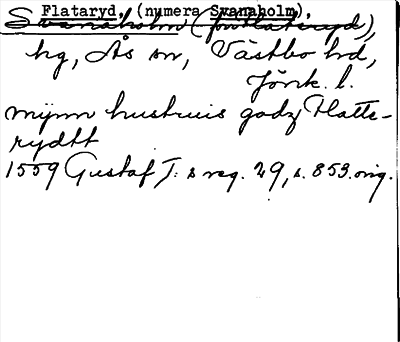 Flataryd, (numera Svanaholm),
Svanaholm (
hg, Ås sn, Västbo hd,
Jönk. l.
mijnn hustruis godz Flatte-
rydtt
1559 Gustaf I:s reg. 29, s. 853. orig.